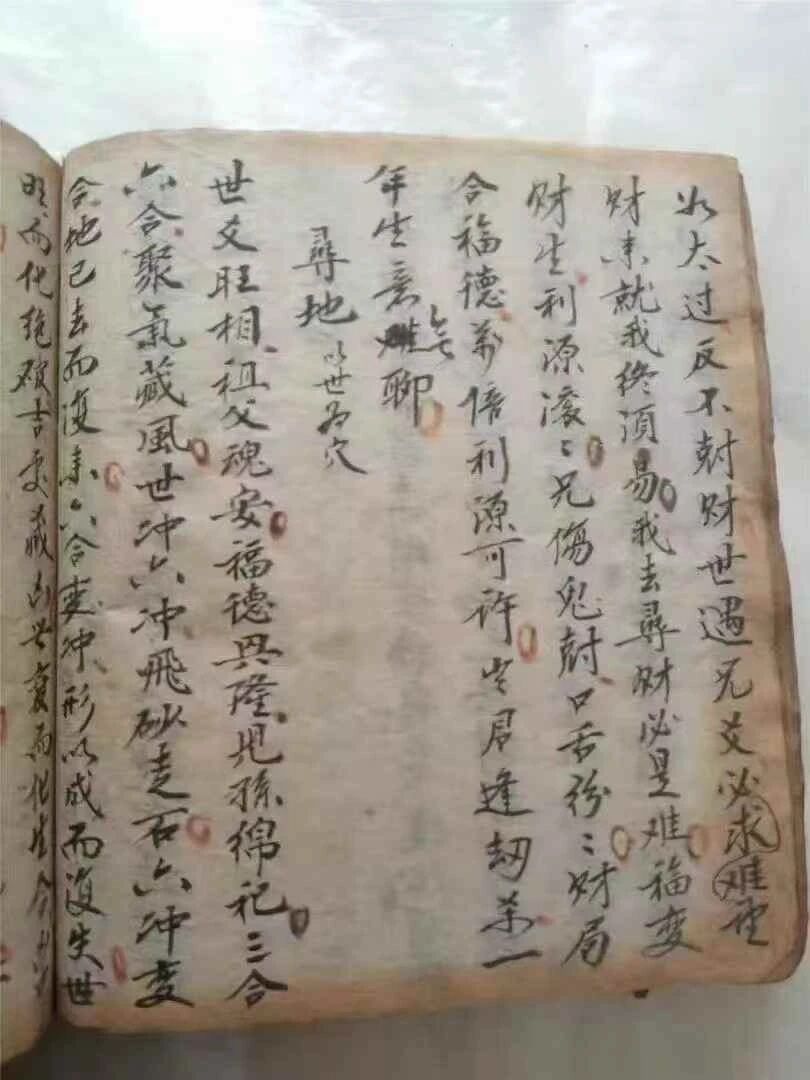 如太过反不尅财世遇兄爻必求难世
财来就我终须易我去尋财必是难福变
财生利源滚〻兄傷鬼尅口舌紛〻财局
合福德美倍利源可许世君逢劫杀一
年生意無聊
尋地 以世为穴
世爻旺相祖父魂安福德興隆児孫綿祀三合
六合聚氣藏風世冲六冲飛砂走石六冲变
合地已去而復来六合変冲形以成而復失世
旺而化絶破吉変藏凶世衰而化生合